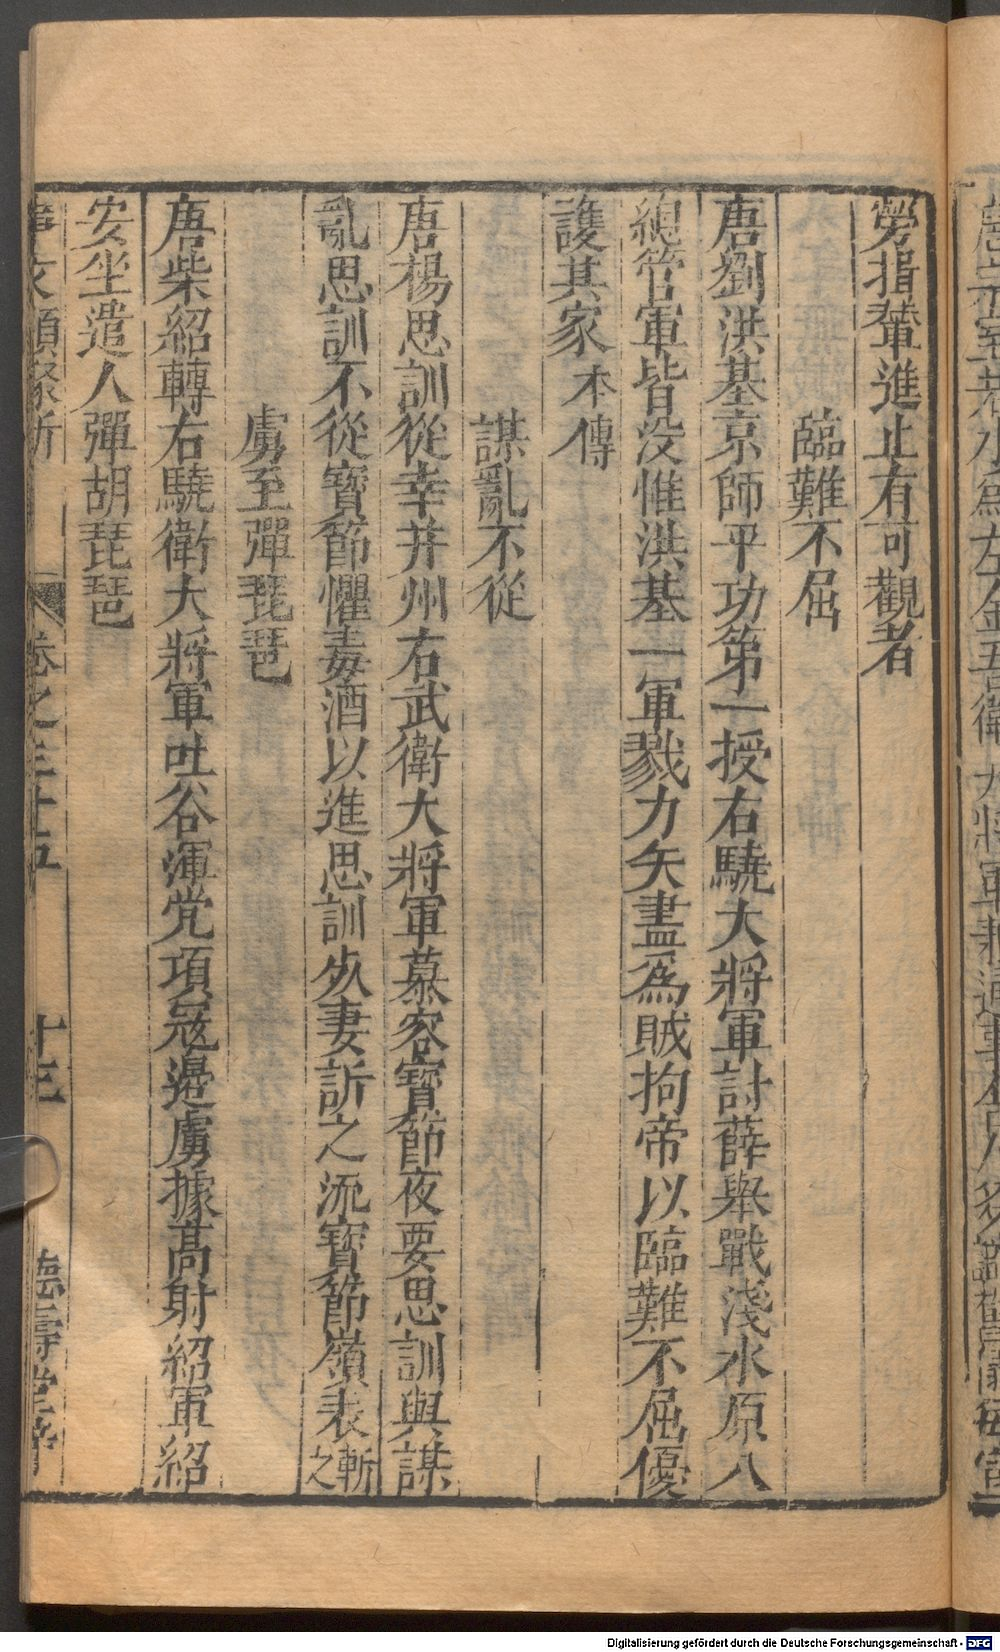 勞指輦進止有可觀者
臨難不屈
唐劉洪基京師平功第一授右驍大將軍討薛舉戰淺水原八
總管軍皆没惟洪基一軍戮力矢盡為賊拘帝以臨難不屈優
護其家本傳
謀亂不從
唐楊思訓從幸并州右武衛大將軍慕容寶節夜要思訓與謀
亂思訓不從寶節懼毒酒以進思訓妖妻訴之流寶節嶺表斬之
虜至彈琵琶
唐柴紹轉右驍衛大將軍吐谷渾党項冦邉虜據高射紹軍紹
安坐遣人彈胡琵琶
卷之三十五
十三
德壽堂梓
左金吾衛大將軍兼通事舍人
Digitalisierung gefördert durch die Deutsche Forschungsgemeinschaft - DFG